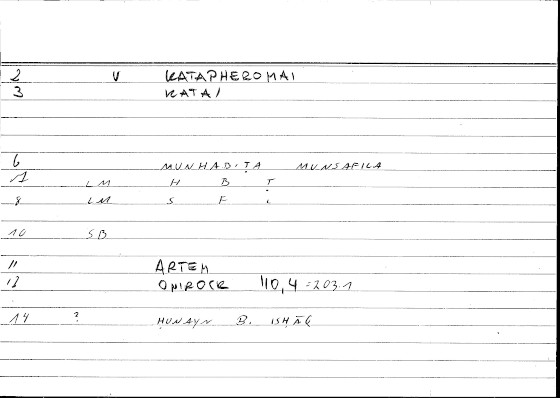 2 V KATAPHEROMAI
3 KATAI
6 MUNHABIṬA MUNSAFILA
7 LM H B Ṭ
8 LM S F L
10 SB
11 ARTEM
12 ONIROCR 110,4 =203.1
14 ? ḤUNAYN B. ISḤĀQ